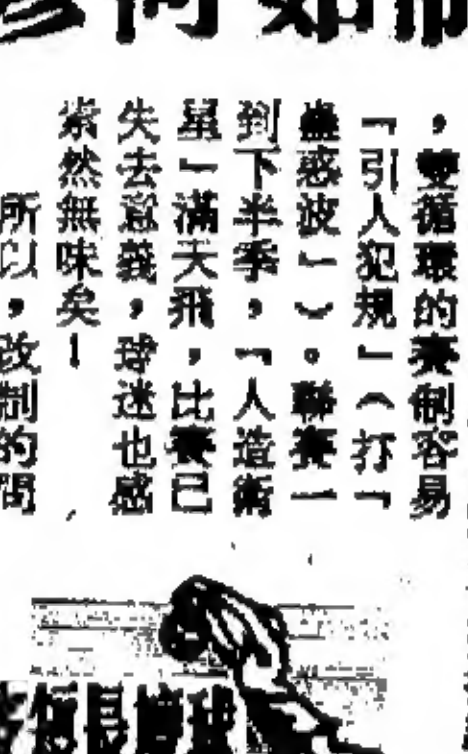 何如制
，雙循環的賽制容易
「引人犯規」（打「
蠱惑波」）。聯賽一
到下半季，「人造衛
星」滿天飛，比賽已
失去意義，球迷也感
索然無味矣！
所以，改制的問
短長壇球